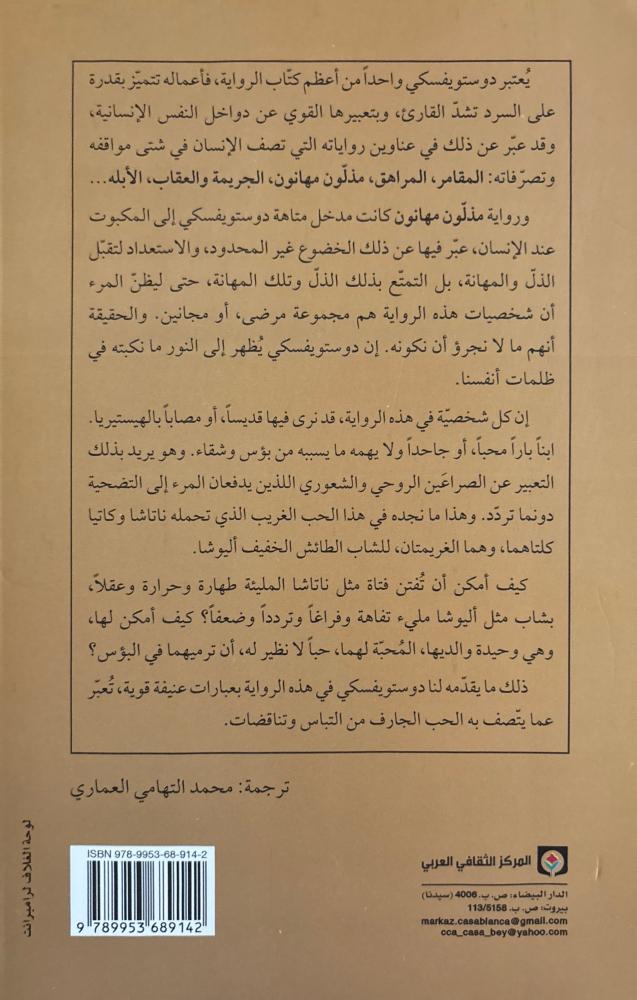 يُعتبر دوستويفسكي واحداً من أعظم كتّاب الرواية، فأعماله تتميّز بقدرة
على السرد تشدّ القارئ، وبتعبيرها القوي عن دواخل النفس الإنسانية،
وقد عبّر عن ذلك في عناوين رواياته التي تصف الإنسان في شتى مواقفه
وتصرّفاته: المقامر، المراهق، مذلّون مهانون، الجريمة والعقاب، الأبله...
ورواية مذلّون مهانون كانت مدخل متاهة دوستويفسكي إلى المكبوت
عند الإنسان، عبّر فيها عن ذلك الخضوع غير المحدود، والاستعداد لتقبّل
الذلّ والمهانة، بل التمتّع بذلك الذلّ وتلك المهانة، حتى ليظنّ المرء
أن شخصيات هذه الرواية هم مجموعة مرضى، أو مجانين. والحقيقة
أنهم ما لا نجرؤ أن نكونه. إن دوستويفسكي يُظهر إلى النور ما نكبته في
ظلمات أنفسنا.
إن كل شخصيّة في هذه الرواية، قد نرى فيها قديساً، أو مصاباً بالهيستيريا.
ابناً باراً محباً، أو جاحداً ولا يهمه ما يسببه من بؤس وشقاء. وهو يريد بذلك
التعبير عن الصراعَين الروحي والشعوري اللذين يدفعان المرء إلى التضحية
دونما تردّد. وهذا ما نجده في هذا الحب الغريب الذي تحمله ناتاشا وكاتيا
كلتاهما، وهما الغريمتان، للشاب الطائش الخفيف أليوشا.
كيف أمكن أن تُفتن فتاة مثل ناتاشا المليئة طهارة وحرارة وعقلاً،
بشاب مثل أليوشا مليء تفاهة وفراغاً وتردداً وضعفاً؟ كيف أمكن لها،
وهي وحيدة والديها، المُحبّة لهما، حباً لا نظير له، أن ترميهما في البؤس؟
ذلك ما يقدّمه لنا دوستويفسكي في هذه الرواية بعبارات عنيفة قوية، تُعبّر
عما يتّصف به الحب الجارف من التباس وتناقضات.
ترجمة: محمد التهامي العماري
لوحة الغلاف لرامبرانت
ISBN 978-9953-68-914-2
9 789953 689142
المركز الثقافي العربي
الدار البيضاء: ص. ب. 4006 (سيدنا)
بيروت: ص. ب. 113/5158
markaz.casablanca@gmail.com
cca_casa_bey@yahoo.com